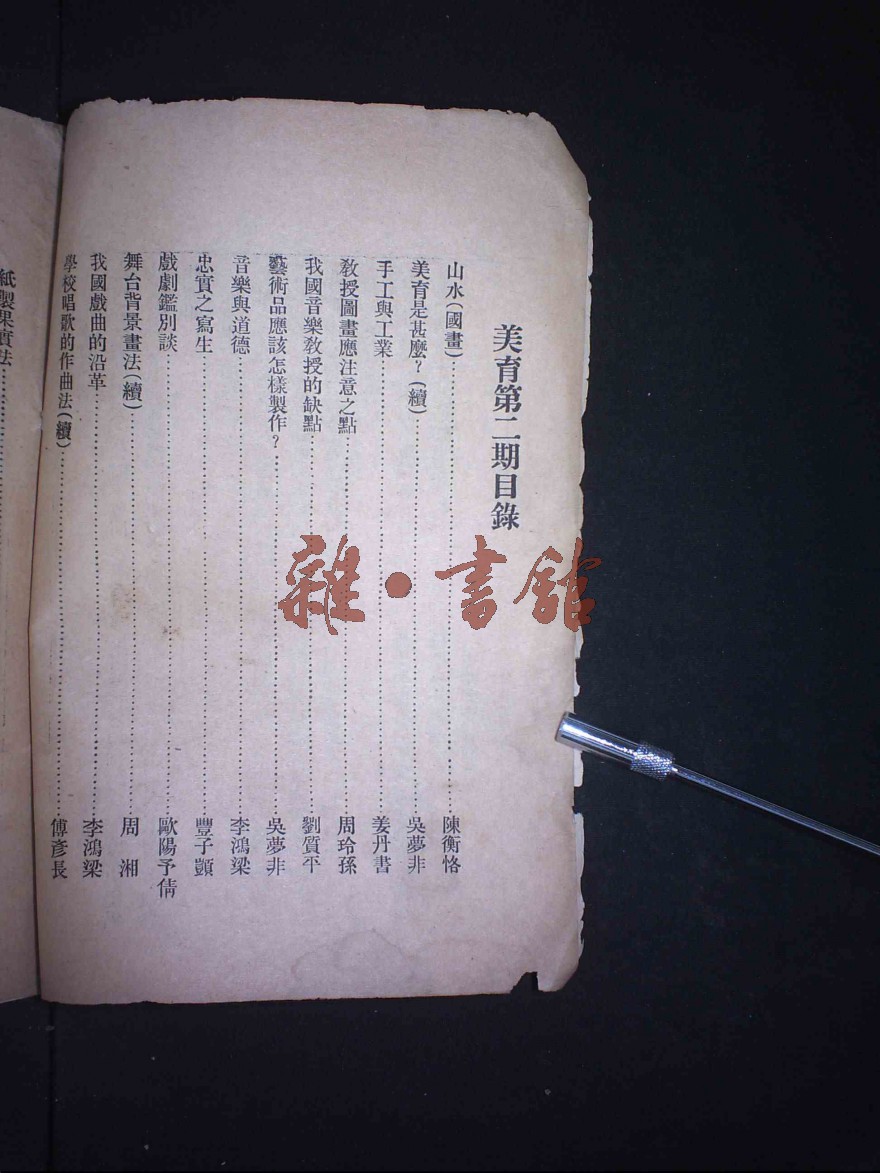 美育第二期目錄
山水(國畫)……陳衡恪
美育是甚麼?(續)……吳夢非
手工與工業……姜丹書
敎授圖畫應注意之點……周玲孫
我國音樂敎授的缺點……劉質平
藝術品應該怎樣製作?……吳夢非
音樂與道德……李鴻梁
忠實之寫生……豐子顗
戲劇鑑別談……歐陽予倩
舞台背景畫法(續)……周湘
我國戲曲的沿革……李鴻梁
學校唱歌的作曲法(續)……傅彥長
紙製果實法……
雜·書館